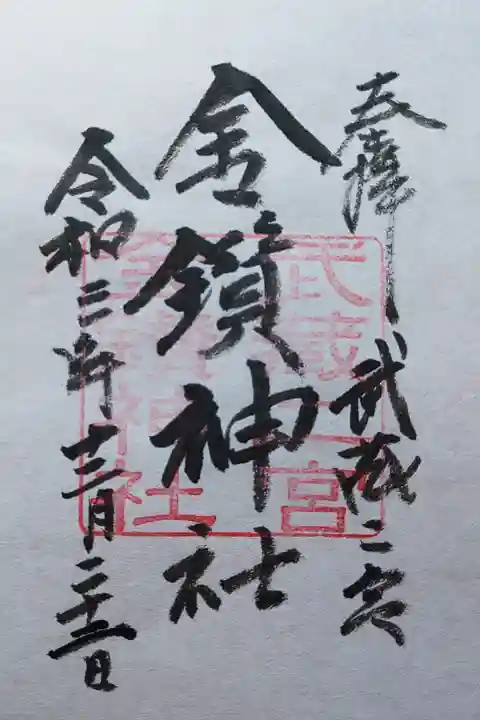 奉拝 武蔵二宮
金鑚神社
令和三年十二月二十三日
武蔵二宮
金鑚神社